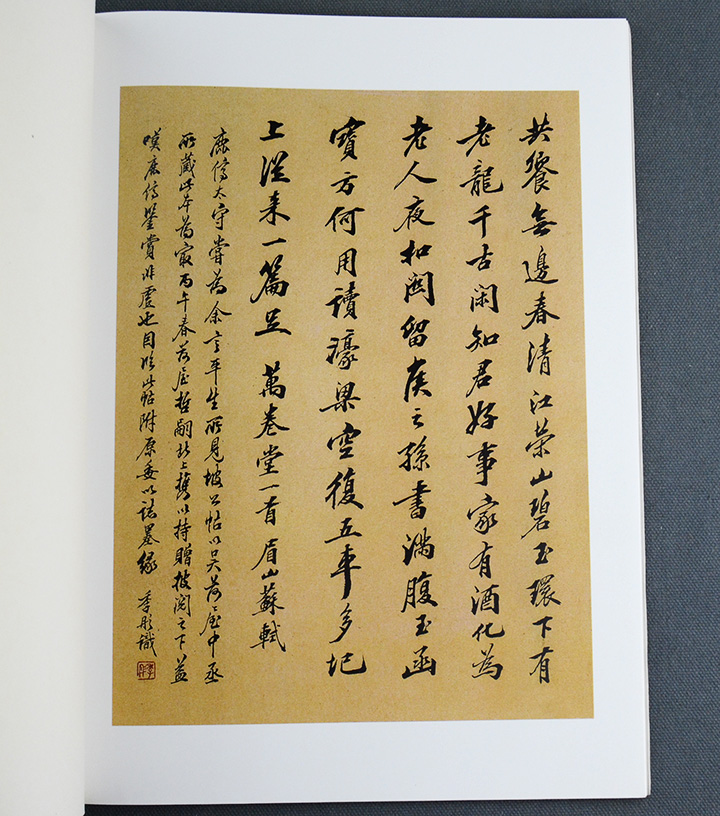 共饗無邊春清江縈山碧玉環下有
老龍千古閑知君好事家有酒化為
老人夜扣關留侯之孫書滿腹玉函
寶方何用讀濠梁空復五車多圯
上從来一篇足 萬卷堂一首 眉山蘇軾
鹿儔太守嘗為余言平生所見坡公帖以吳荷屋中丞
所藏此本為最丙午春荷屋哲嗣北上携以持贈披閱之下益
嘆鹿儔鑒賞非虛也因臨此帖附原委以誌墨緣 季彤識